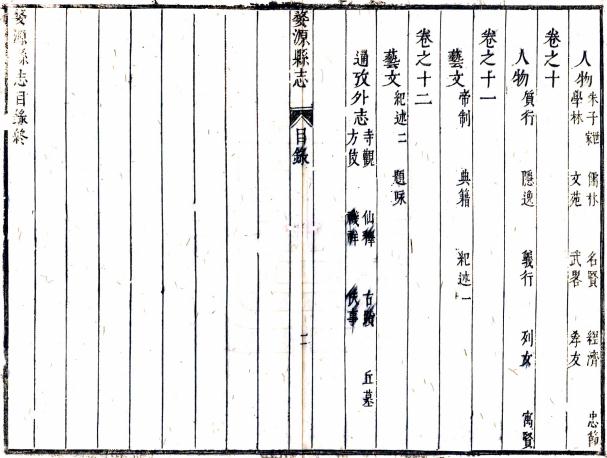 人物 朱子世家 儒林 名賢 經濟 忠節
學林 文苑 武畧 孝友
卷之十
人物 質行 隱逸 義行 列女 寓賢
卷之十一
藝文 帝制 典籍 紀述一
卷之十二
藝文 紀述二 題咏
通攷外志 寺觀 仙釋 古蹟 丘墓
方伎 禨祥 佚事
婺源縣志 目錄 二
婺源縣志目錄終